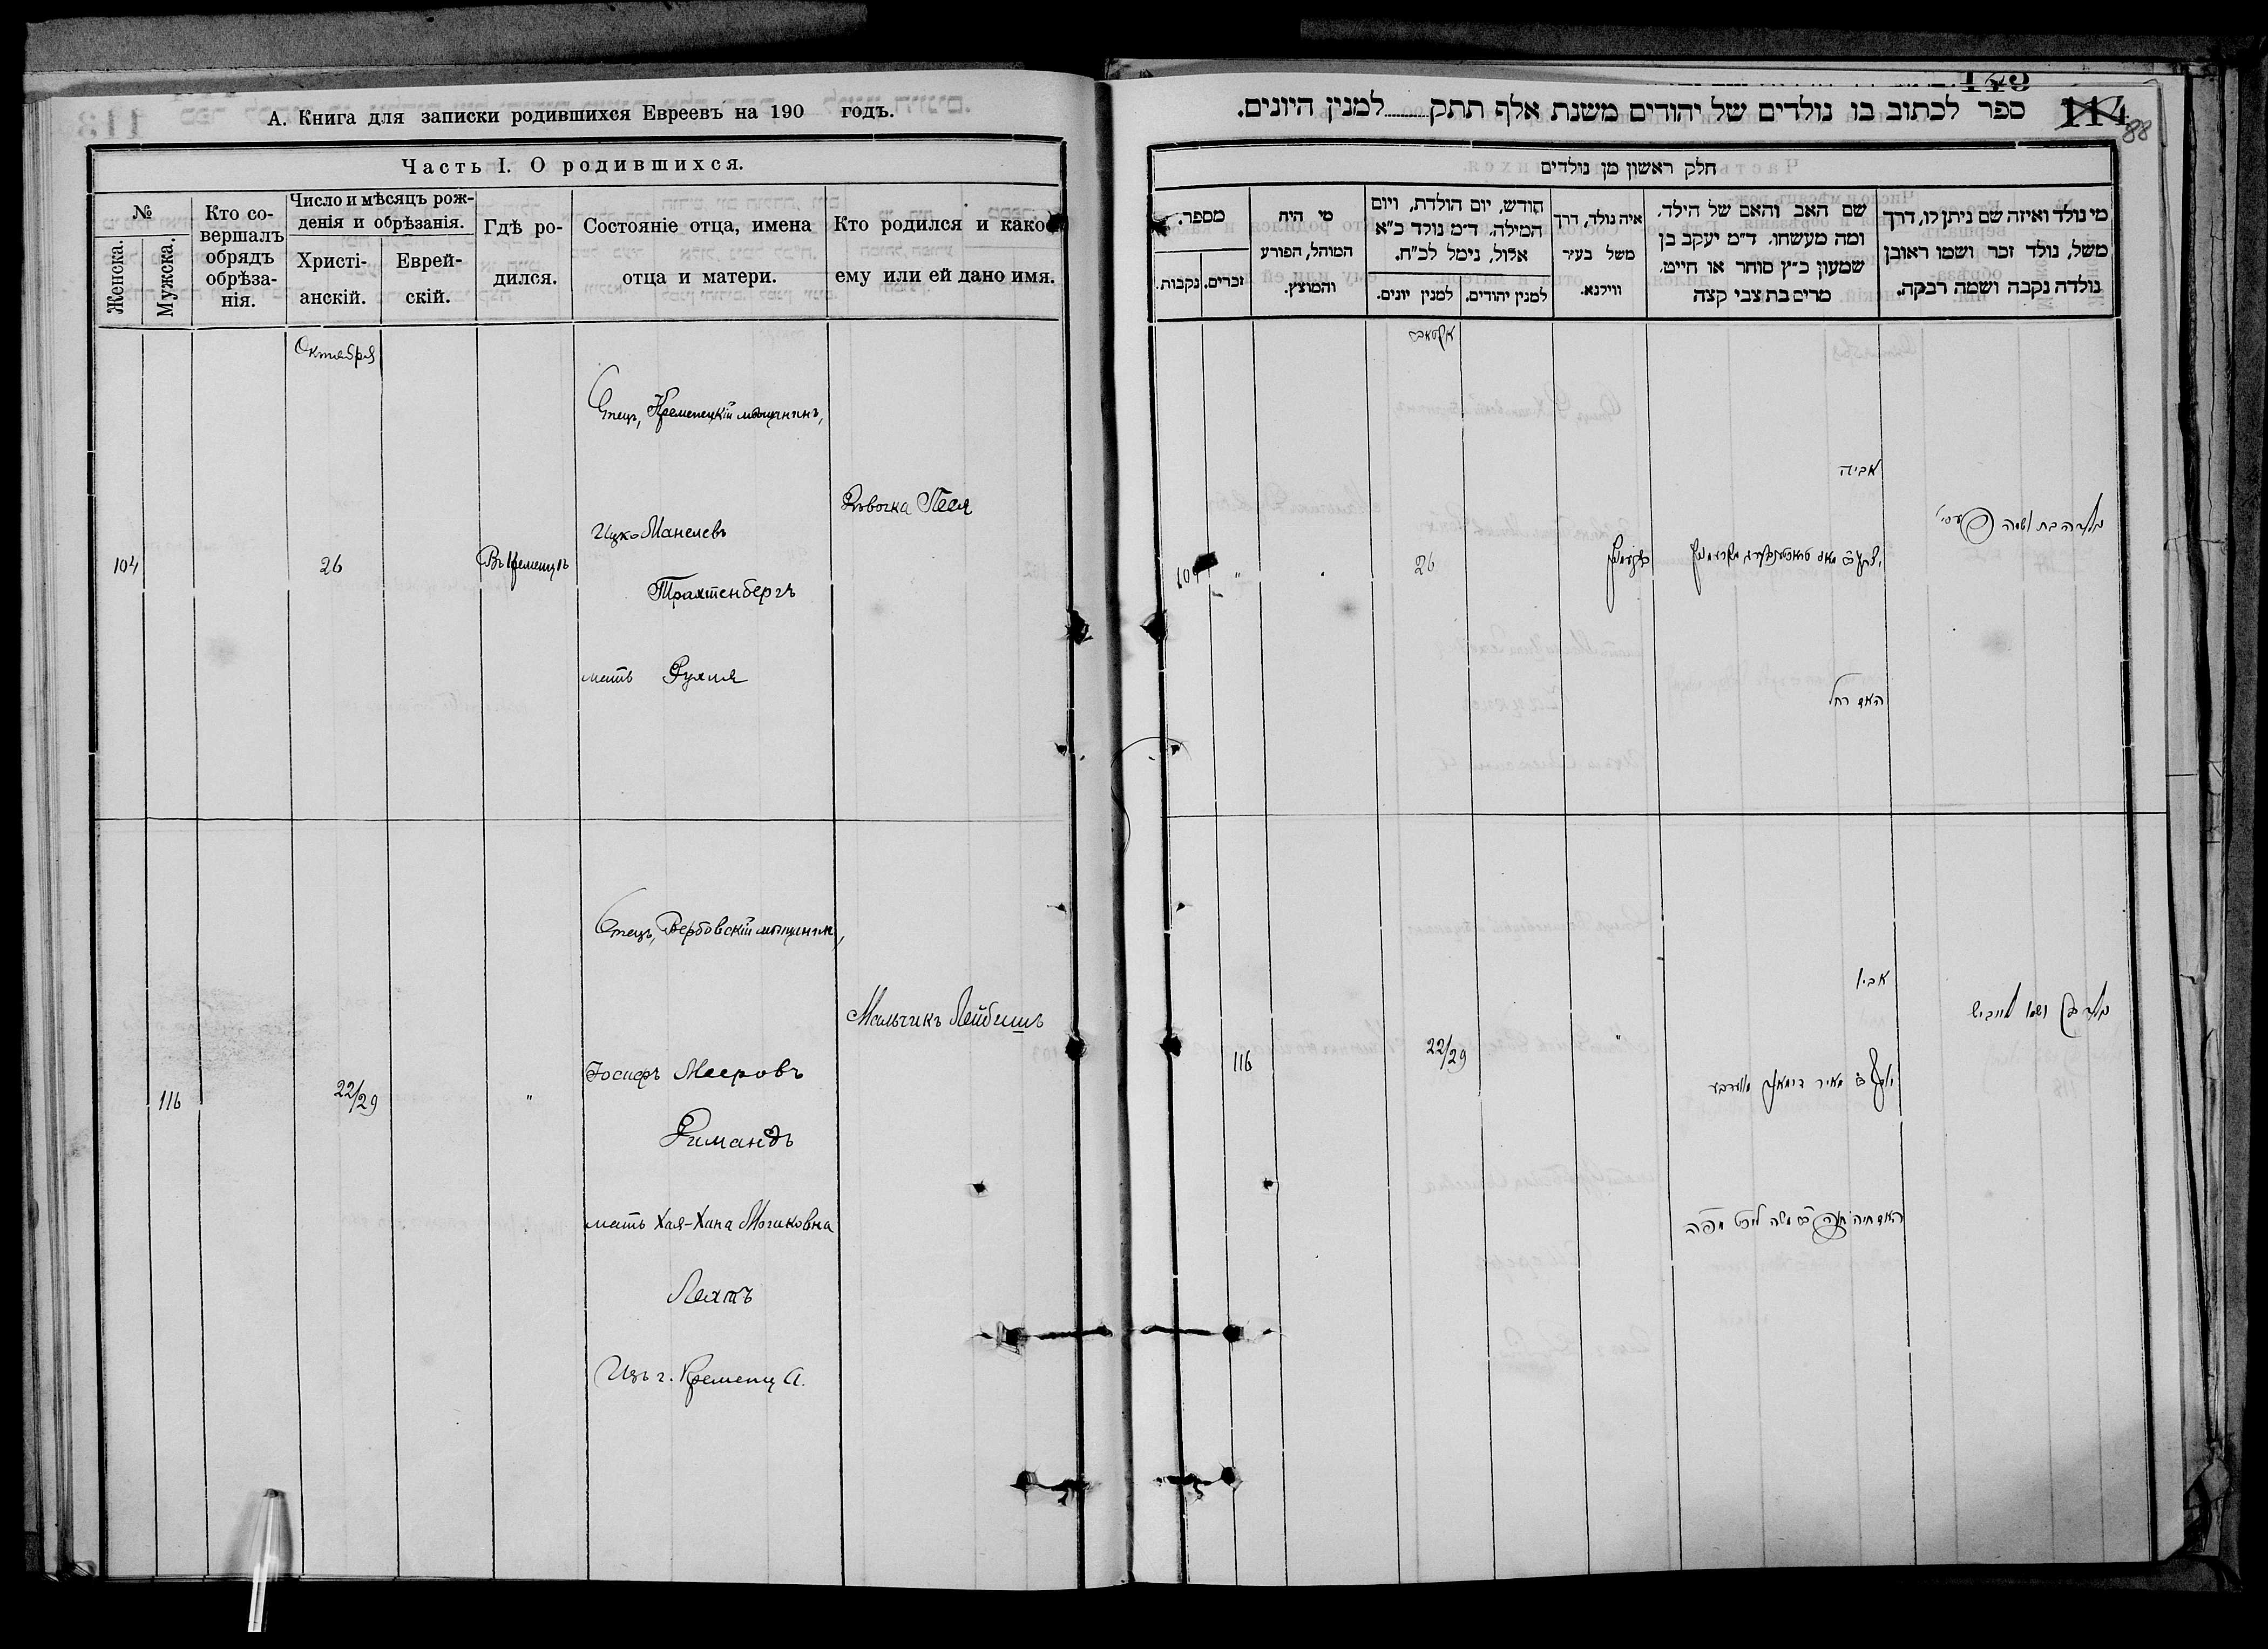 А. Книга для записки родившихся Евреевъ на 190 годъ.
Часть I. О родившихся.
№
Женска.
Мужска.
Кто со-
вершалъ
обрядъ
обрѣза-
нія.
Число и мѣсяцъ рож-
денія и обрѣзанія.
Христі-
анскій.
Еврей-
скій.
Гдѣ ро-
дился.
Состояніе отца, имена
отца и матери.
Кто родился и какое
ему или ей дано имя.
Октября
104
26
Въ Кременцѣ
Отецъ, Кременецкій мѣщанинъ,
Ицко Манелевъ
Трахтенбергъ
мать Рухля
Дѣвочка Песя
116
22/29
"
Отецъ, Вербовскій мѣщанинъ,
Іосифъ Мееровъ
Римандъ
мать Хая-Хана Мошковна
Лехтъ
Изъ г. Кременца.
Мальчикъ Лейбишъ
145
114
88
ספר לכתוב בו נולדים של יהודים משנת אלף תתק........למנין היונים.
חלק ראשון מן נולדים
מי נולד ואיזה שם ניתן לו, דרך
משל, נולד זכר ושמו ראובן
נולדה נקבה ושמה רבקה.
שם האב והאם של הילד,
ומה מעשהו. ד״מ יעקב בן
שמעון כ״ץ סוחר או חייט,
מרים בת צבי קצה
איה נולד, דרך
משל בעיר
ווילנא.
חודש, יום הולדת, ויום
המילה. ד״מ נולד כ״א
אלול, נימל לכ״ח.
למנין יהודים.
למנין יונים.
מי היה
המוהל, הפורע
והמוצץ.
מספר.
זכרים.
נקבות.
אקטאב
נולדה בת ושמה פעסי
אביה
האם רחל
26
"
104
נולד בן ושמו לייביש
אביו
"
22/29
116